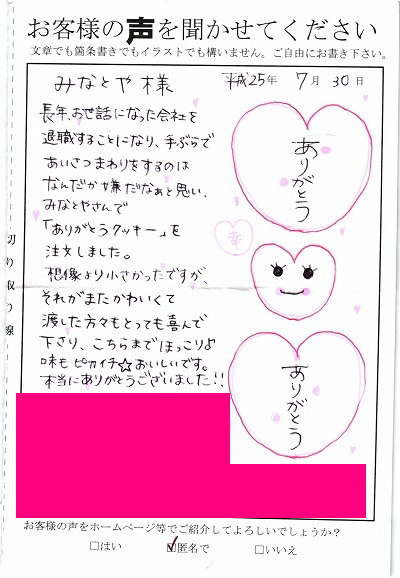 お客様の声を聞かせてください
文章でも箇条書きでもイラストでも構いません。ご自由にお書き下さい。
みなとや様
平成25年 7月 30日
長年、お世話になった会社を
退職することになり、手ぶらで
あいさつまわりをするのは
なんだか嫌だなぁと思い、
みなとやさんで
「ありがとうクッキー」を
注文しました。
想像より小さかったですが、
それがまたかわいくて
渡した方々もとっても喜んで
下さり、こちらまでほっこり♪
味もピカイチ☆おいしいです。
本当にありがとうございました!!
ありがとう
幸
ありがとう
切り取り線
お客様の声をホームページ等でご紹介してよろしいでしょうか?
□はい ☑匿名で □いいえ